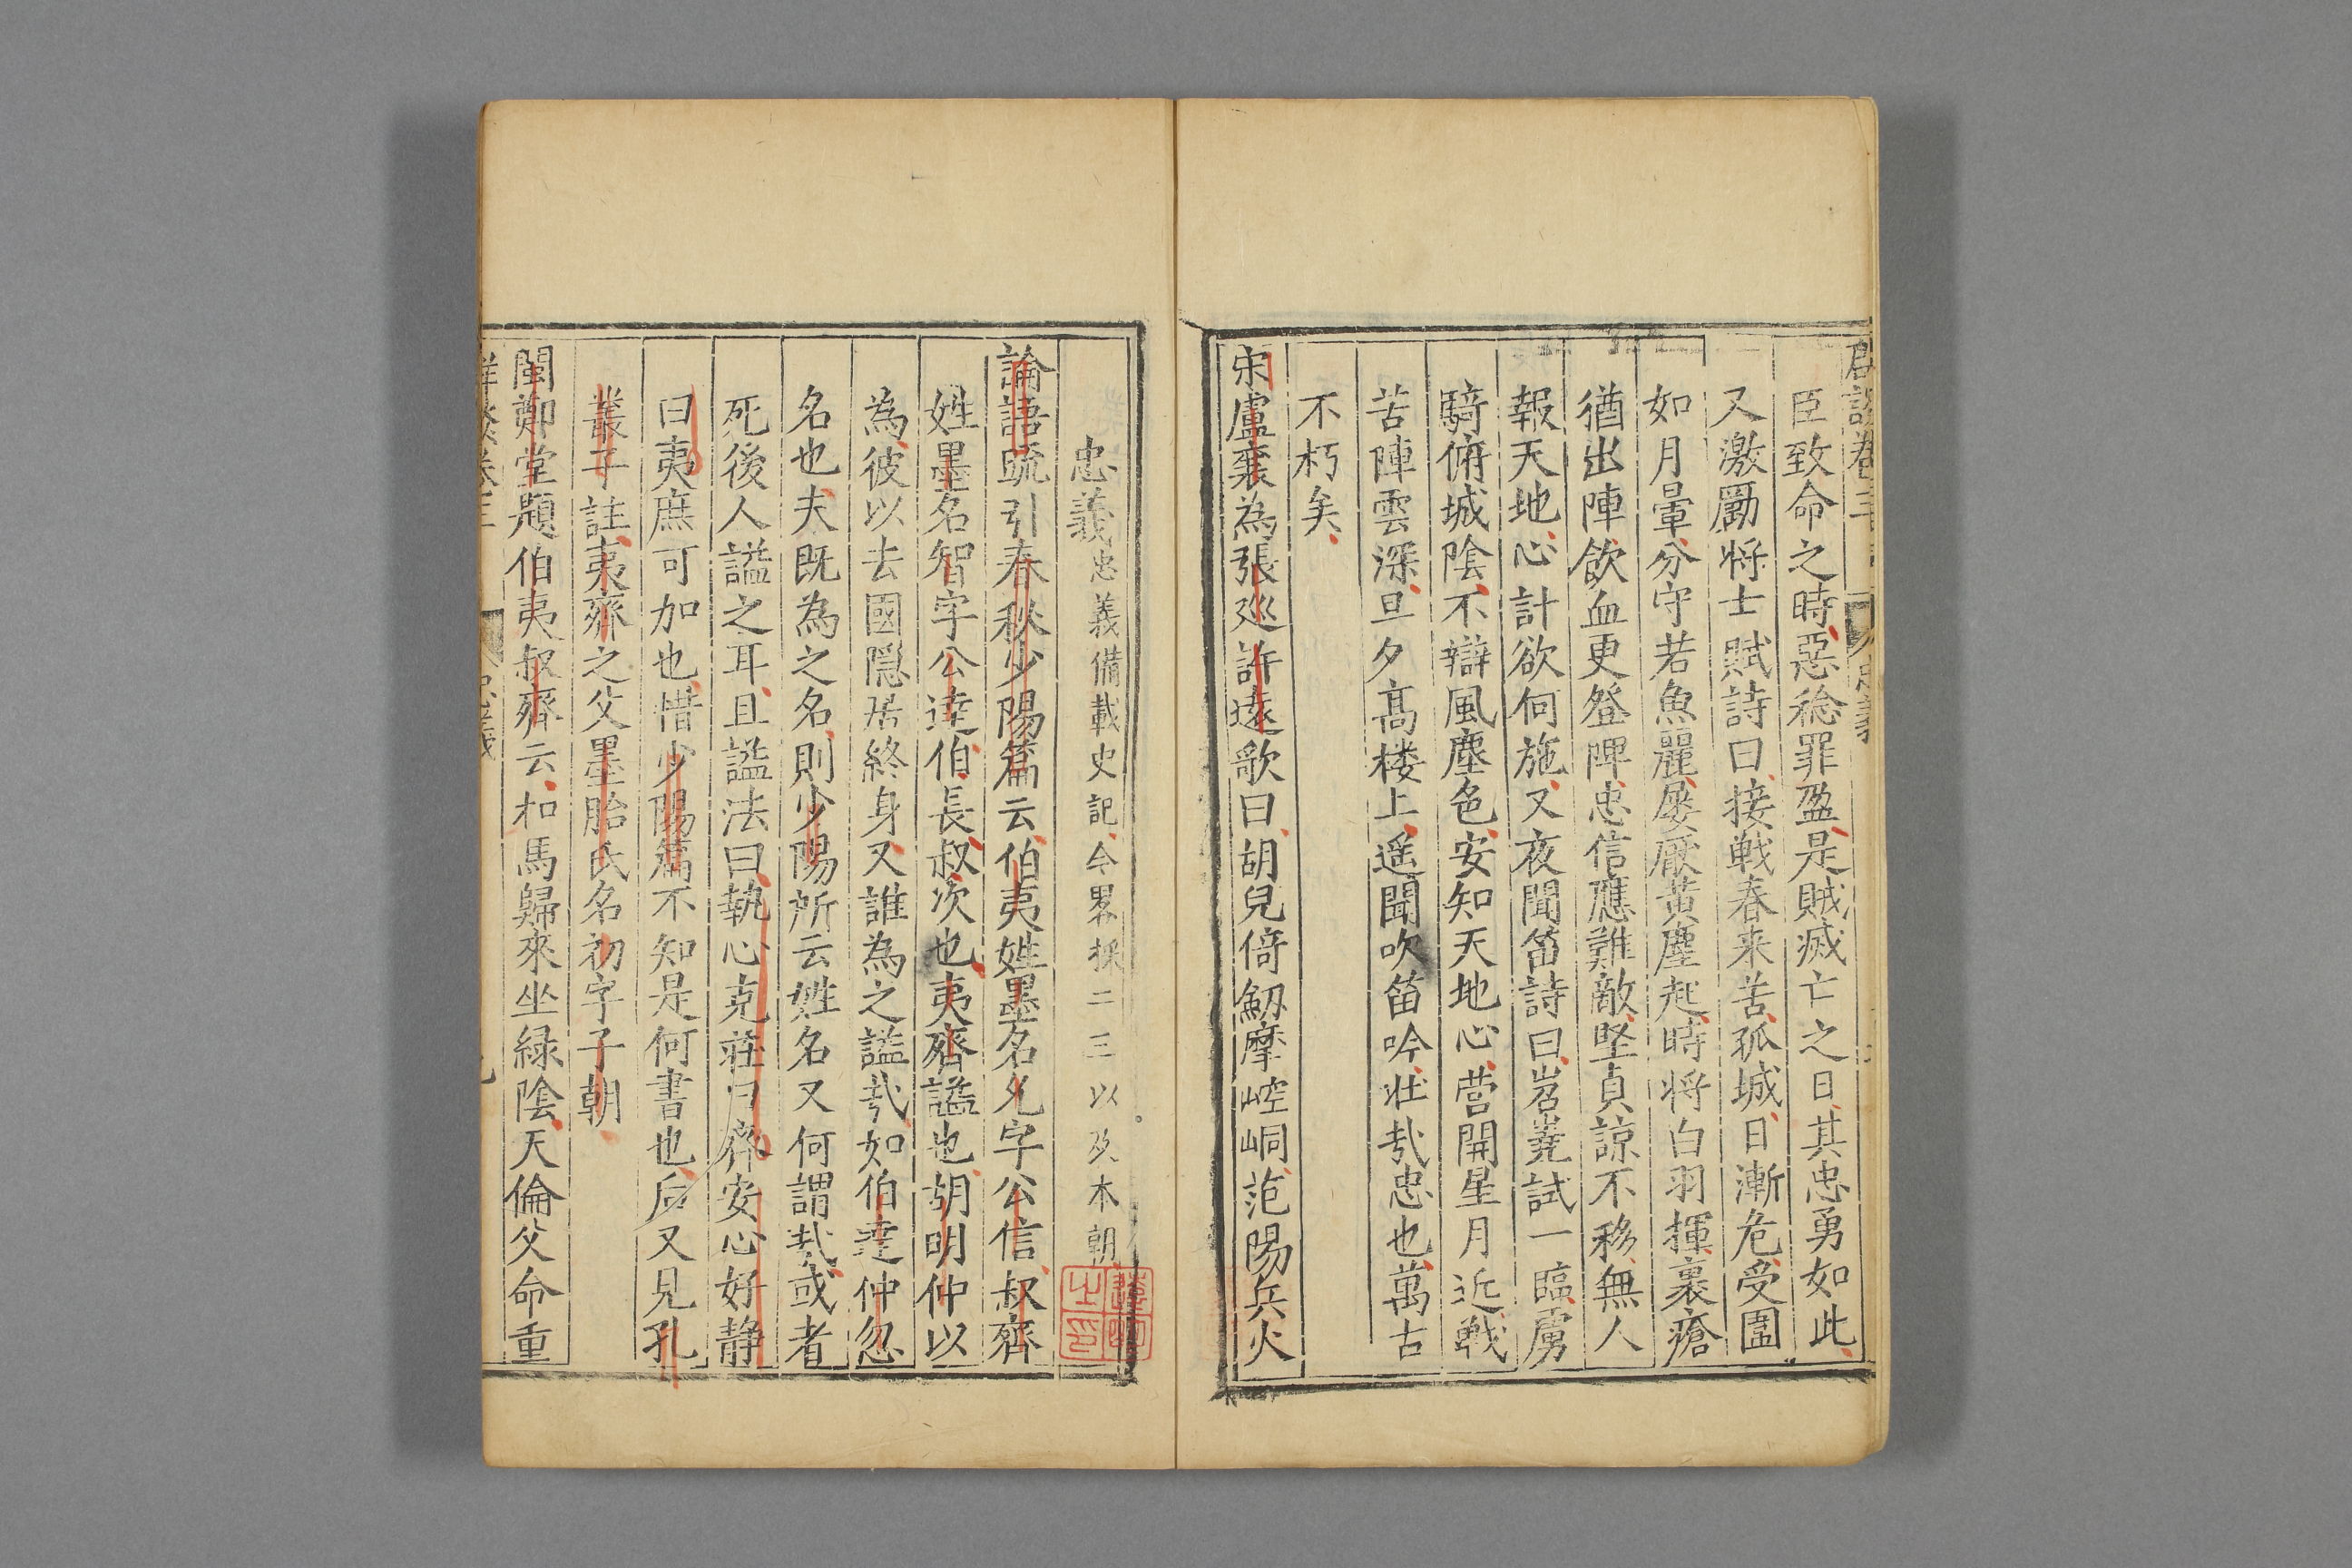 臣致命之時惡稔罪盈是賊滅亡之日其忠勇如此
又激勵将士賦詩曰接戦春来苦孤城日漸危受圍
如月暈分守若魚麗屡厭黄塵起時将白羽揮裹瘡
猶出陣飲血更登陴忠信應難敵堅貞諒不移無人
報天地心計欲何施又夜聞笛詩曰岧嶤試一臨虜
騎俯城陰不辯風塵色安知天地心营開星月近戦
苦陣雲深旦夕髙楼上遥聞吹笛吟壮哉忠也萬古
不朽矣
宋盧襄為張巡許遠歌曰胡兒倚劔摩崆峒范陽兵火
忠義忠義備載史記今畧採二三以及本朝
論語疏引春秋少陽篇云伯夷姓墨名允字公信叔齊
姓墨名智字公達伯長叔次也夷齊謚也胡明仲以
為彼以去國隠居終身又誰為之謚哉如伯達仲忽
名也夫既為之名則少陽所云姓名又何謂哉或者
死後人謚之耳且謚法曰執心克莊曰齊安心好静
曰夷庶可加也惜少陽篇不知是何書也后又見孔
叢子註夷齊之父墨胎氏名初字子朝
閩鄭堂題伯夷叔齊云扣馬歸來坐緑陰天倫父命重